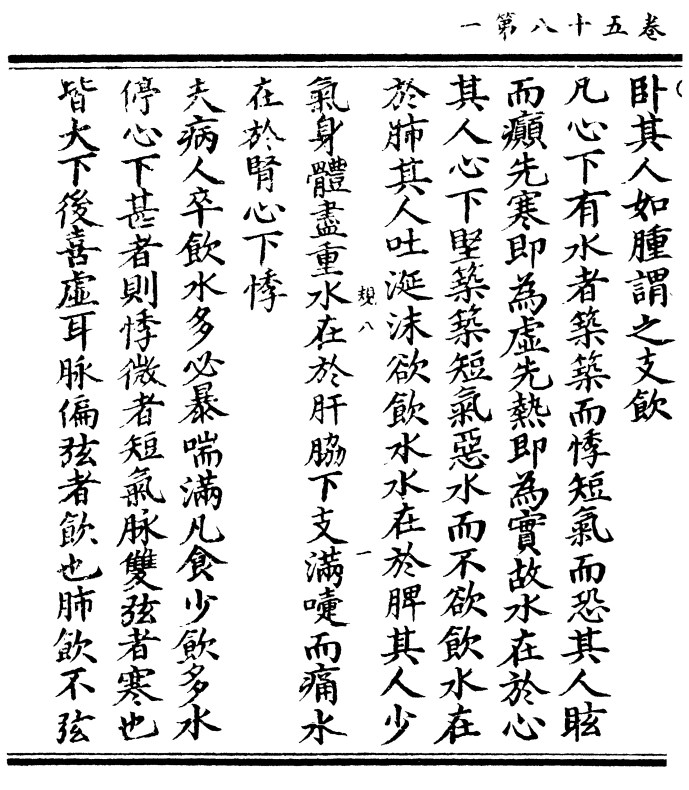 卷五十八第一
卧其人如腫謂之支飲
凡心下有水者築築而悸短氣而恐其人眩
而癲先寒即為虛先熱即為實故水在於心
其人心下堅築築短氣惡水而不欲飲水在
於肺其人吐涎沫欲飲水水在於脾其人少
規八
一
氣身體盡重水在於肝脇下支滿嚏而痛水
在於腎心下悸
夫病人卒飲水多必暴喘滿凡食少飲多水
停心下甚者則悸微者短氣脉雙弦者寒也
皆大下後喜虛耳脉偏弦者飲也肺飲不弦